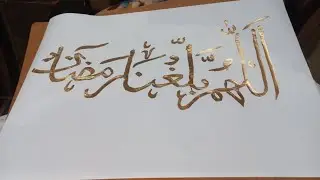 اللهم بلغنا رمضان